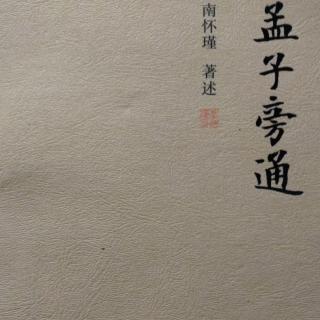 孟子旁通
南怀瑾 著述